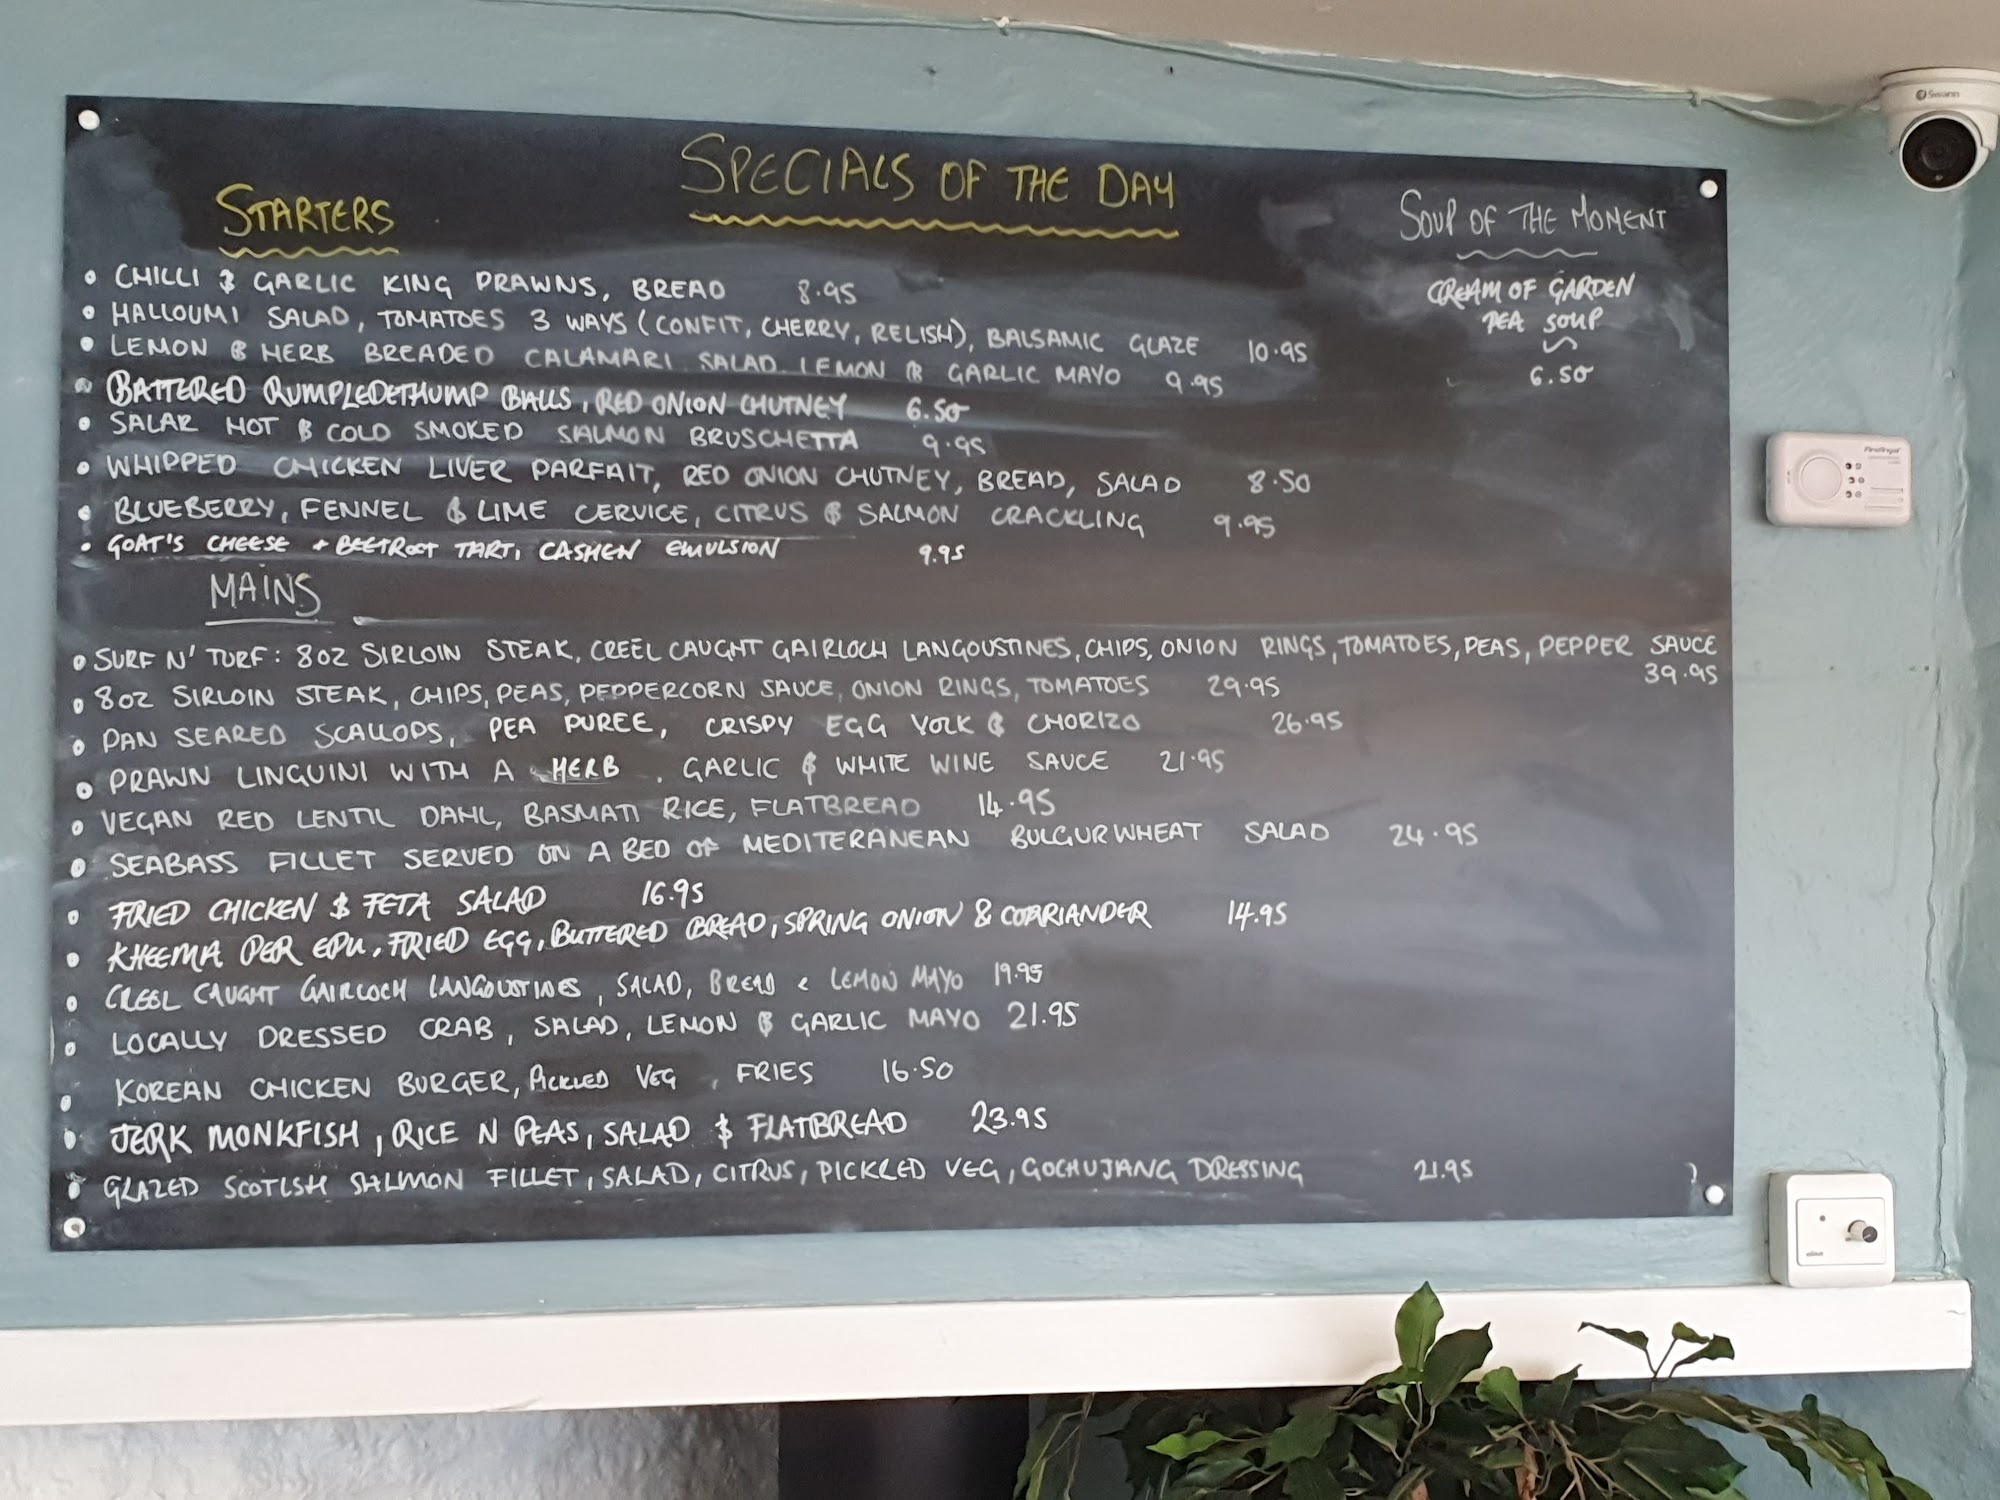 SPECIALS OF THE DAY
STARTERS
• CHILLI & GARLIC KING PRAWNS, BREAD 8.95
• HALLOUMI SALAD, TOMATOES 3 WAYS (CONFIT, CHERRY, RELISH), BALSAMIC GLAZE 10.95
• LEMON & HERB BREADED CALAMARI SALAD. LEMON & GARLIC MAYO 9.95
• BATTERED RUMPLEDETHUMP BALLS, RED ONION CHUTNEY 6.50
• SALAR HOT & COLD SMOKED SALMON BRUSCHETTA 9.95
• WHIPPED CHICKEN LIVER PARFAIT, RED ONION CHUTNEY, BREAD, SALAD 8.50
• BLUEBERRY, FENNEL & LIME CERVICE, CITRUS & SALMON CRACKLING 9.95
• GOAT'S CHEESE + BEETROOT TART, CASHEW EMULSION 9.95
SOUP OF THE MOMENT
CREAM OF GARDEN
PEA SOUP
6.50
MAINS
• SURF N' TURF: 8OZ SIRLOIN STEAK, CREEL CAUGHT GAIRLOCH LANGOUSTINES, CHIPS, ONION RINGS, TOMATOES, PEAS, PEPPER SAUCE
39.95
• 8OZ SIRLOIN STEAK, CHIPS, PEAS, PEPPERCORN SAUCE, ONION RINGS, TOMATOES 29.95
• PAN SEARED SCALLOPS, PEA PUREE, CRISPY EGG YOLK & CHORIZO 26.95
• PRAWN LINGUINI WITH A HERB, GARLIC & WHITE WINE SAUCE 21.95
• VEGAN RED LENTIL DAHL, BASMATI RICE, FLATBREAD 14.95
• SEABASS FILLET SERVED ON A BED OF MEDITERANEAN BULGURWHEAT SALAD 24.95
• FRIED CHICKEN & FETA SALAD 16.95
• KHEEMA PER EDU, FRIED EGG, BUTTERED BREAD, SPRING ONION & CORRIANDER 14.95
• CREEL CAUGHT GAIRLOCH LANGOUSTINES, SALAD, BREAD & LEMON MAYO 19.95
• LOCALLY DRESSED CRAB, SALAD, LEMON & GARLIC MAYO 21.95
• KOREAN CHICKEN BURGER, PICKLED VEG, FRIES 16.50
• JERK MONKFISH, RICE N PEAS, SALAD & FLATBREAD 23.95
• GLAZED SCOTISH SALMON FILLET, SALAD, CITRUS, PICKLED VEG, GOCHUJANG DRESSING 21.95
Swann
FireAngel